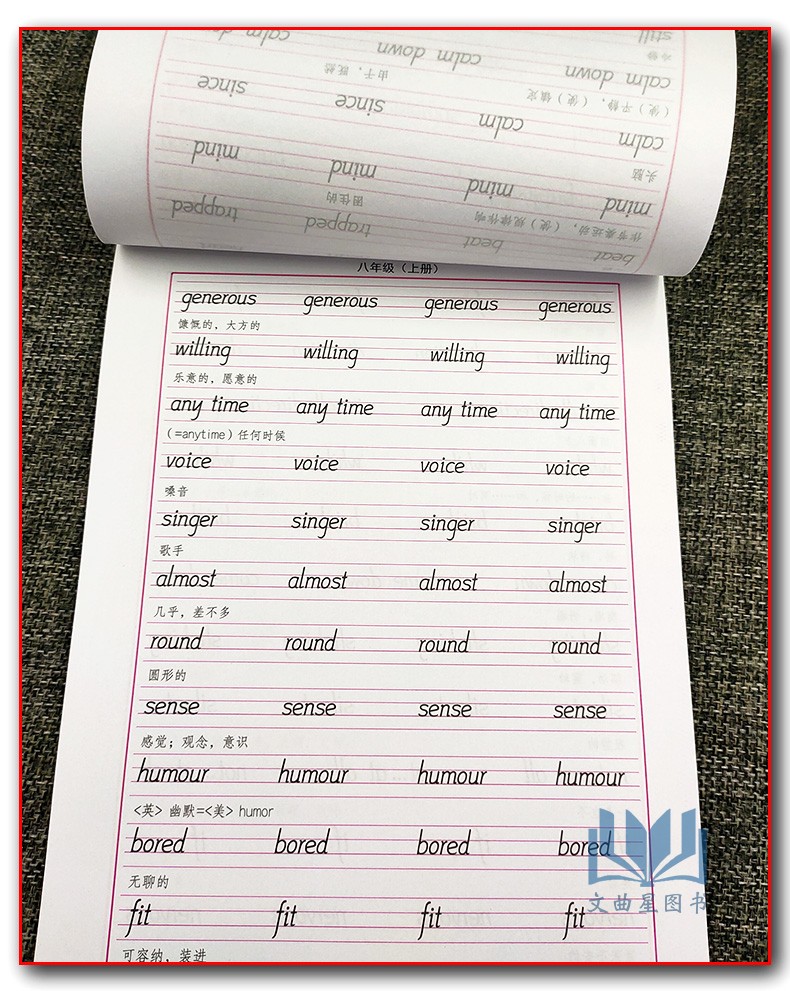 still
calm down calm down calm down
冷静
由于，既然
since since calm calm
（使）平静，（使）镇定
mind mind mind mind
头脑
trapped trapped beat beat
困住的
作节奏运动，（使）规律作响
八年级（上册）
generous generous generous generous
慷慨的，大方的
willing willing willing willing
乐意的，愿意的
any time any time any time any time
(=anytime) 任何时候
voice voice voice voice
嗓音
singer singer singer singer
歌手
almost almost almost almost
几乎，差不多
round round round round
圆形的
sense sense sense sense
感觉；观念，意识
humour humour humour humour
<英> 幽默=<美> humor
bored bored bored bored
无聊的
fit fit fit fit
可容纳，装进
文曲星图书